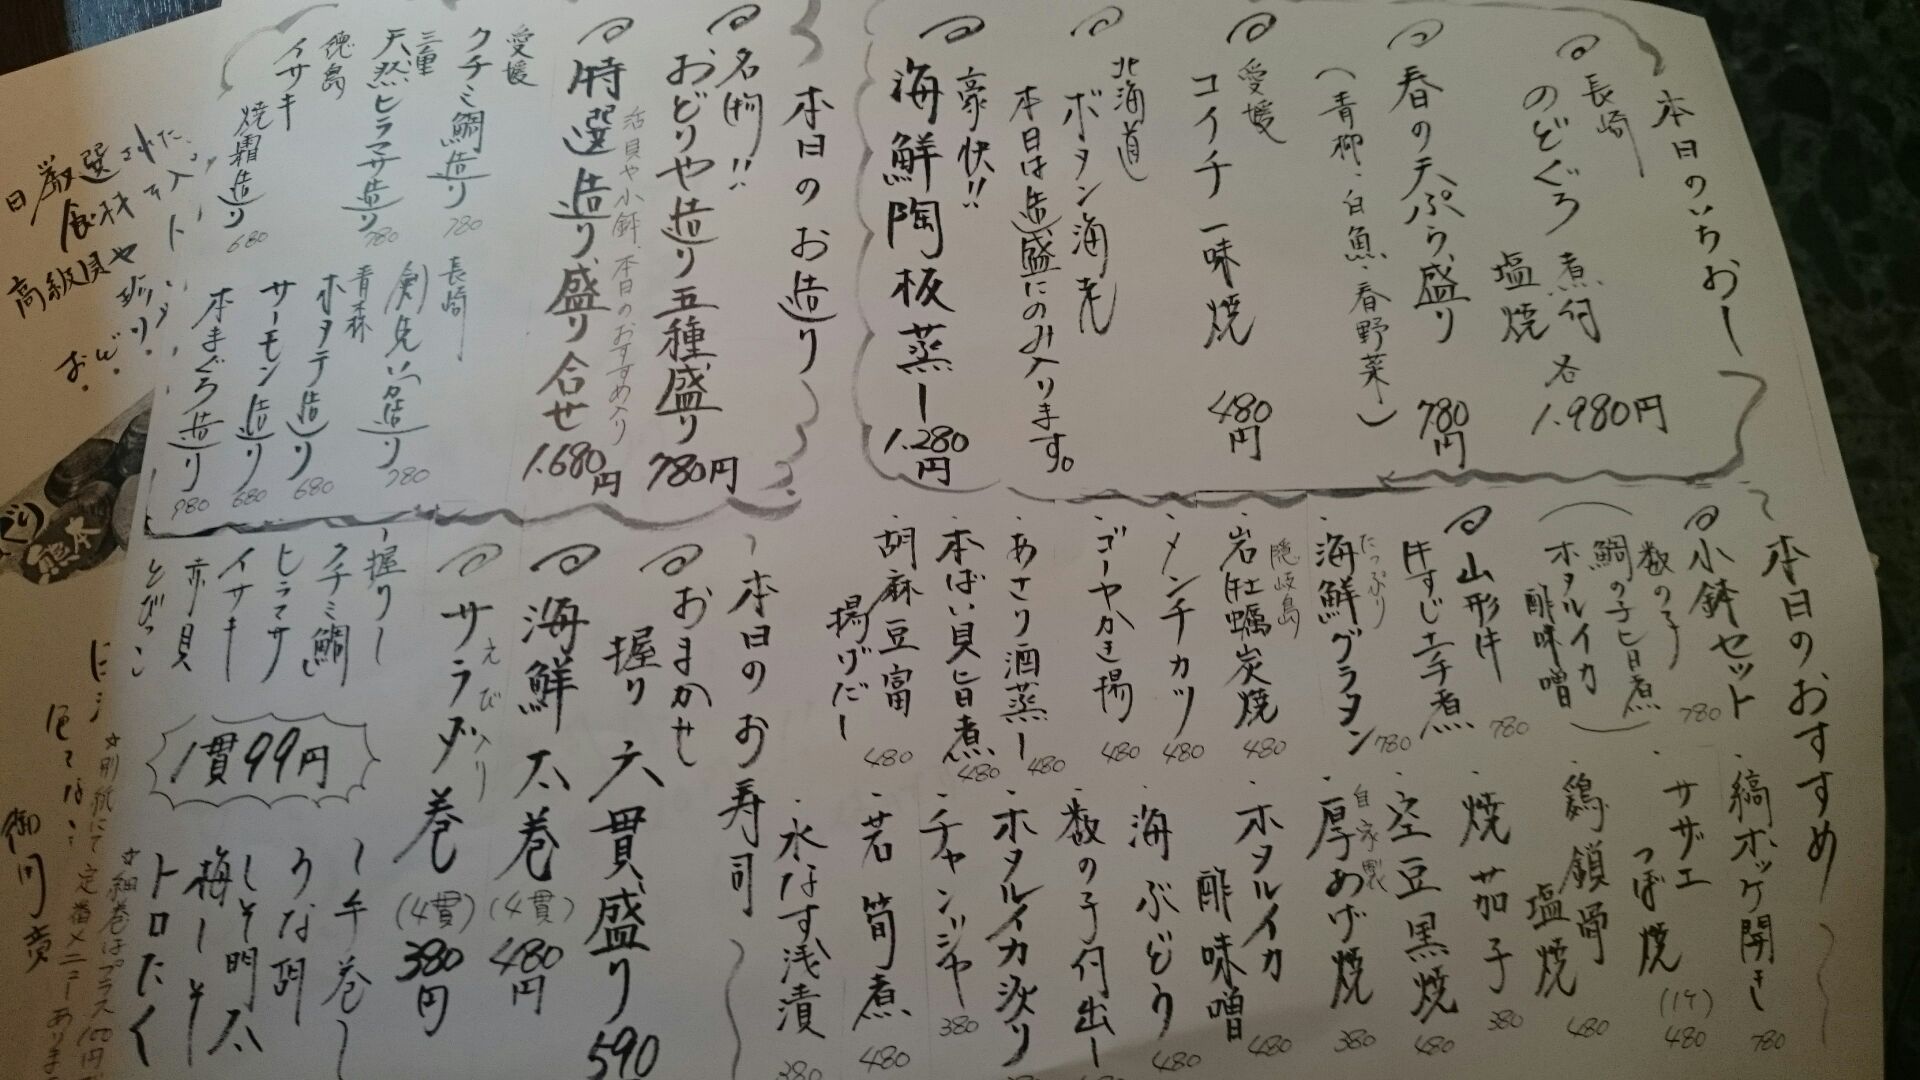 本日のいちおし
長崎
のどぐろ 煮付
塩焼
各
1.980円
春の天ぷら盛り
780円
(青柳・白魚・春野菜)
愛媛
コイチ一味焼
480円
北海道
ボタン海老
本日は造盛にのみ入ります。
豪快!!
海鮮陶板蒸し
1.280円
本日のお造り
名物!!
おどりや造り五種盛り
780円
活貝や小鉢、本日のおすすめ入り
特選造り盛り合せ
1.680円
愛媛
クチミ鯛造り
780
三重
天然ヒラマサ造り
780
徳島
イサキ
焼霜造り
680
長崎
剣先いか造り
780
青森
ホタテ造り
680
サーモン造り
680
本まぐろ造り
980
本日のおすすめ
小鉢セット
780
数の子
鯛の子旨煮
ホタルイカ
酢味噌
山形牛
牛すじ土手煮
780
たっぷり
海鮮グラタン
780
隠岐島
岩牡蠣炭焼
480
メンチカツ
480
ゴーヤかき揚
480
あさり酒蒸し
480
本ばい貝旨煮
480
胡麻豆富
揚げだし
480
縞ホッケ開き
780
サザエ
つぼ焼
(1ケ)
480
鶏鎖骨
塩焼
480
焼茄子
380
空豆黒焼
480
自家製
厚あげ焼
380
ホタルイカ
酢味噌
480
海ぶどう
480
数の子付出し
ホタルイカ沖漬り
チャンジャ
380
若筍煮
480
水なす浅漬
380
本日のお寿司
おまかせ
握り六貫盛り
590
海鮮太巻
(4貫)
480円
えび入り
サラダ巻
(4貫)
380円
握り
クチミ鯛
ヒラマサ
イサキ
赤貝
とびっこ
1貫99円
手巻
うな胡
しそ明太
梅しそ
トロたく
☆細巻はプラス100円
☆別紙にて定番メニューあります
日厳選された
食材や
高級貝や
おどり
熊本